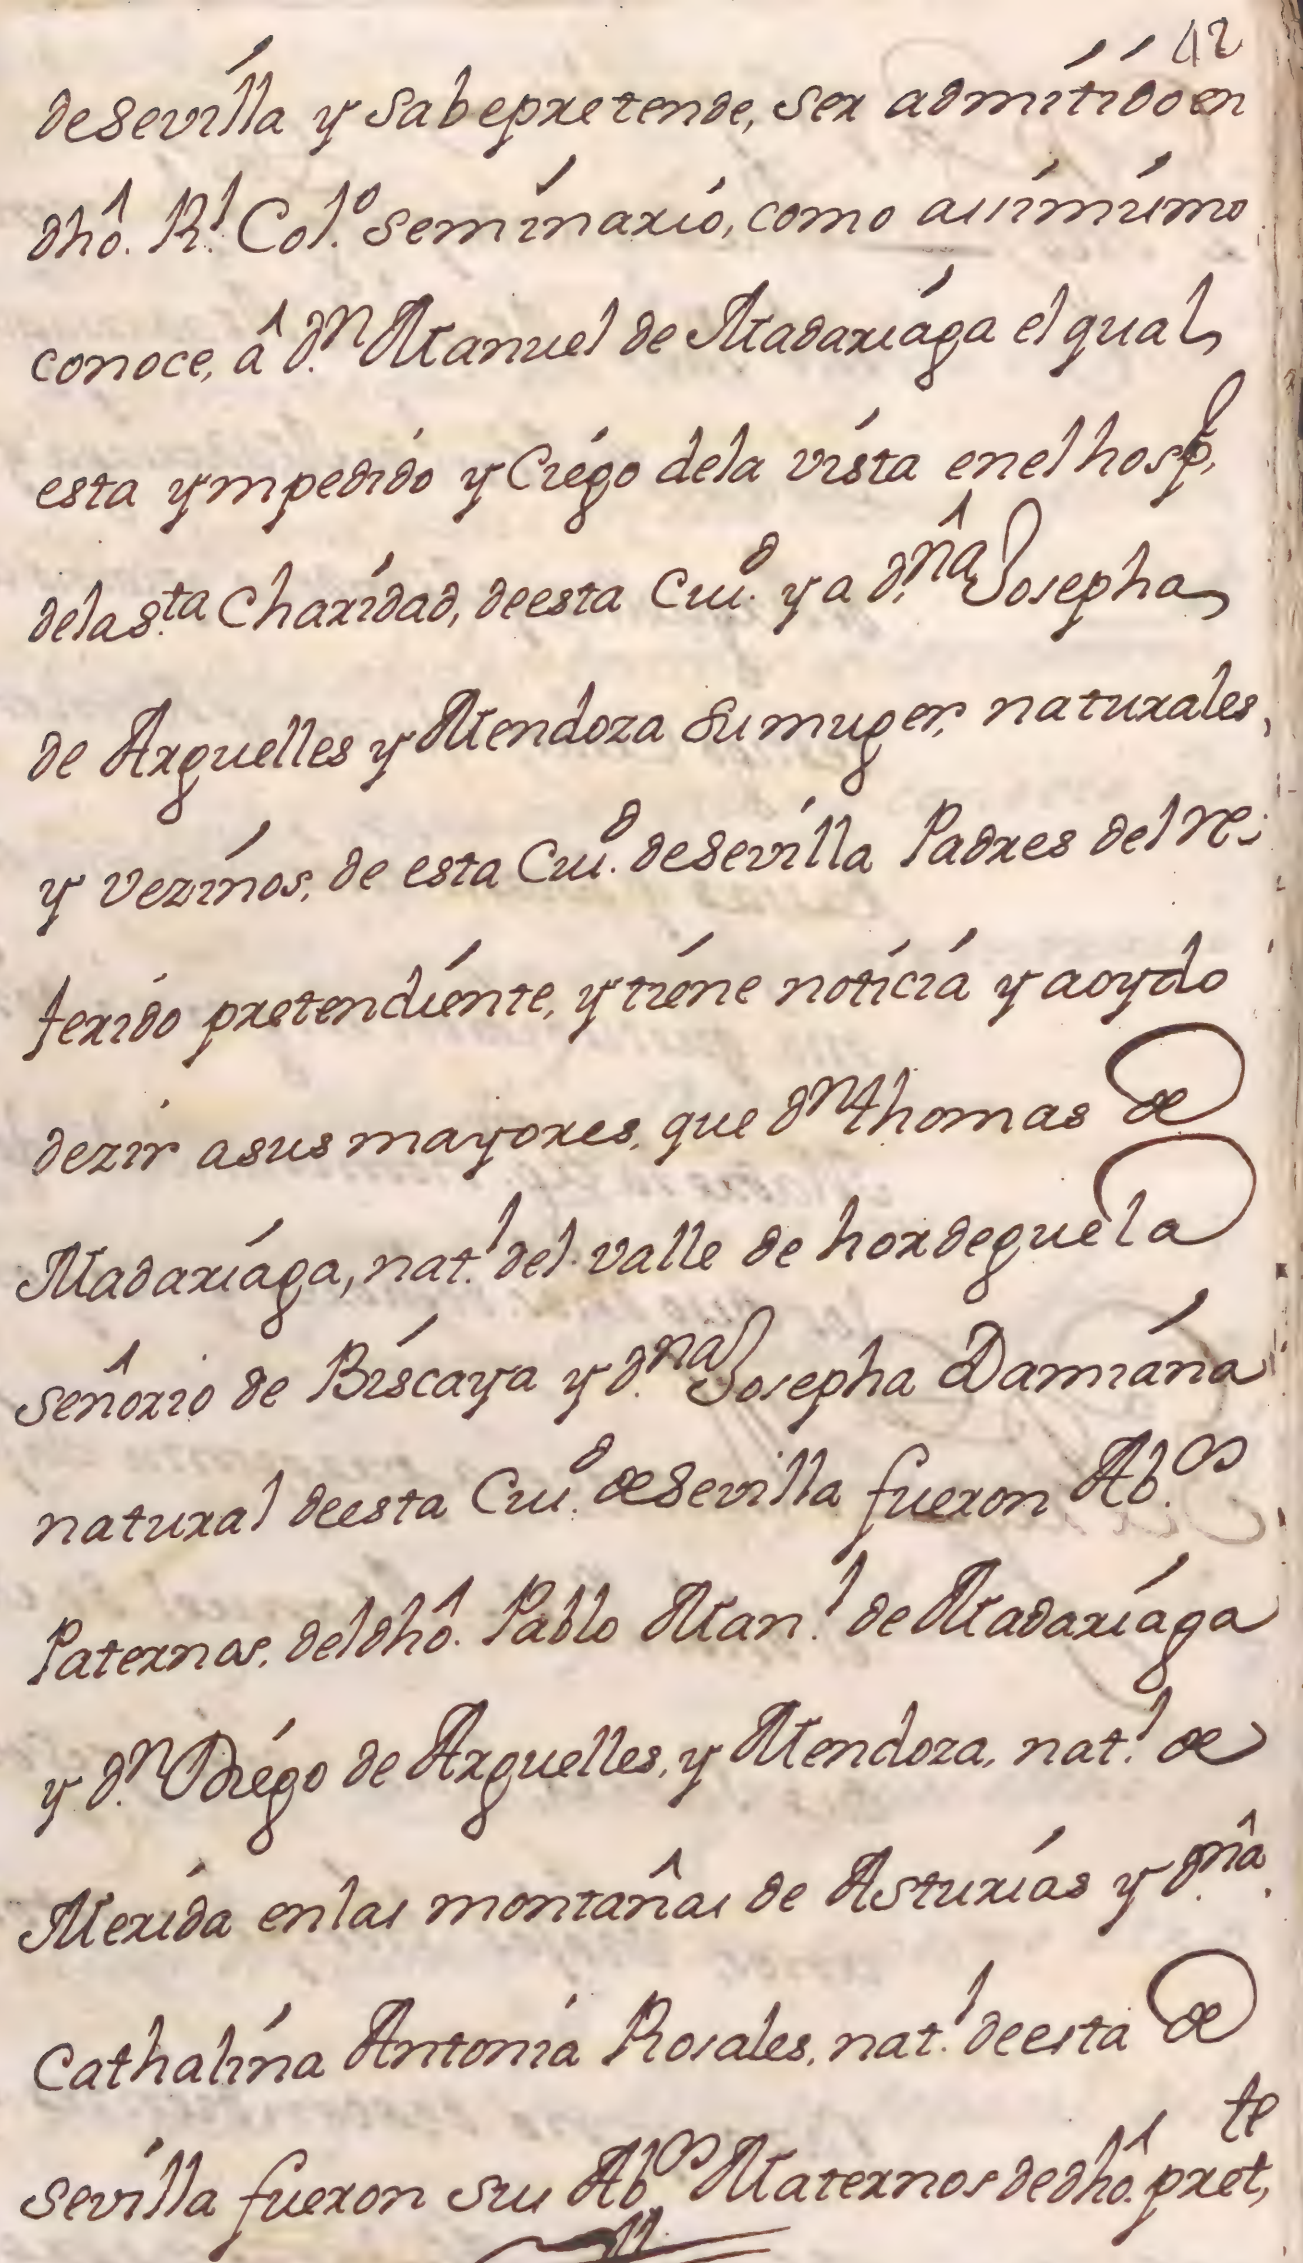 42
de Sevilla y sabe pretende, ser admitido en
dhô. Rl. Colo. Seminario, como assimismo
conoce, â dn. Manuel de Madariaga el qual
esta ympedido y Ciego dela vista enel hospl.
delasta. Charidad, deesta Ciud. y a dña. Josepha
de Arguelles y Mendoza su muger, naturales,
y Vezinos, de esta Ciud. de Sevilla Padres del re-
ferido pretendiente, y tiene noticia y a oydo
dezir asus mayores, que dn. thomas de
Madariaga, natl. del valle de hordeguela
señorio de Biscaya y dna. Josepha Damiana
natural deesta Ciud. de Sevilla fueron Abos.
Paternos, del dhô. Pablo Manl. de Madariaga
y dn. Diego de Arguelles, y Mendoza, natl. de
Merida enlas montañas de Asturias y dña.
Cathalina Antonia Rosales, natl. deesta de
Sevilla fueron sus Abos. Maternos de dhô. prette,